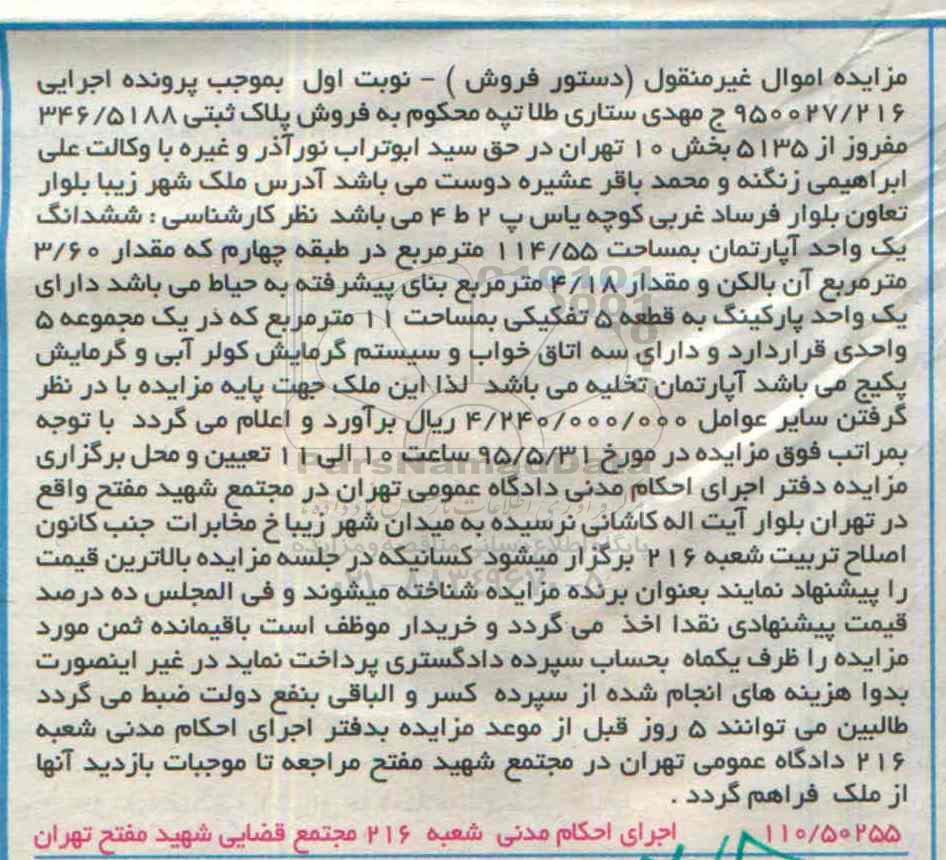 مزایده اموال غیرمنقول (دستور فروش ) - نوبت اول  بموجب پرونده اجرایی
۹۵۰۰۲۷/۲۱۶ ج مهدی ستاری طلا تپه محکوم به فروش پلاک ثبتی ۳۴۶/۵۱۸۸
مفروز از ۵۱۳۵ بخش ۱۰ تهران در حق سید ابوتراب نورآذر و غیره با وکالت علی
ابراهیمی زنگنه و محمد باقر عشیره دوست می باشد آدرس ملک شهر زیبا بلوار
تعاون بلوار فرساد غربی کوچه یاس پ ۲ ط ۴ می باشد  نظر کارشناسی : ششدانگ
یک واحد آپارتمان بمساحت ۱۱۴/۵۵ مترمربع در طبقه چهارم که مقدار ۳/۶۰
مترمربع آن بالکن و مقدار ۴/۱۸ مترمربع بنای پیشرفته به حیاط می باشد دارای
یک واحد پارکینگ به قطعه ۵ تفکیکی بمساحت ۱۱ مترمربع که در یک مجموعه ۵
واحدی قراردارد و دارای سه اتاق خواب و سیستم گرمایش کولر آبی و گرمایش
پکیج می باشد آپارتمان تخلیه می باشد  لذا این ملک جهت پایه مزایده با در نظر
گرفتن سایر عوامل ۴/۲۴۰/۰۰۰/۰۰۰ ریال برآورد و اعلام می گردد  با توجه
بمراتب فوق مزایده در مورخ ۹۵/۵/۳۱ ساعت ۱۰ الی ۱۱ تعیین و محل برگزاری
مزایده دفتر اجرای احکام مدنی دادگاه عمومی تهران در مجتمع شهید مفتح واقع
در تهران بلوار آیت اله کاشانی نرسیده به میدان شهر زیبا خ مخابرات  جنب کانون
اصلاح تربیت شعبه ۲۱۶  برگزار میشود  کسانیکه در جلسه مزایده بالاترین قیمت
را پیشنهاد نمایند بعنوان برنده مزایده شناخته میشوند و فی المجلس ده درصد
قیمت پیشنهادی نقدا اخذ  می گردد و خریدار موظف است باقیمانده ثمن مورد
مزایده را ظرف یکماه  بحساب سپرده دادگستری پرداخت نماید در غیر اینصورت
بدوا هزینه های انجام شده از سپرده  کسر و الباقی بنفع دولت ضبط می گردد
طالبین می توانند ۵ روز قبل از موعد مزایده بدفتر اجرای احکام مدنی شعبه
۲۱۶ دادگاه عمومی تهران در مجتمع شهید مفتح مراجعه تا موجبات بازدید آنها
از ملک  فراهم گردد .
۱۱۰/۵۰۲۵۵ اجرای احکام مدنی  شعبه  ۲۱۶ مجتمع قضایی شهید مفتح تهران
ParsNamadData